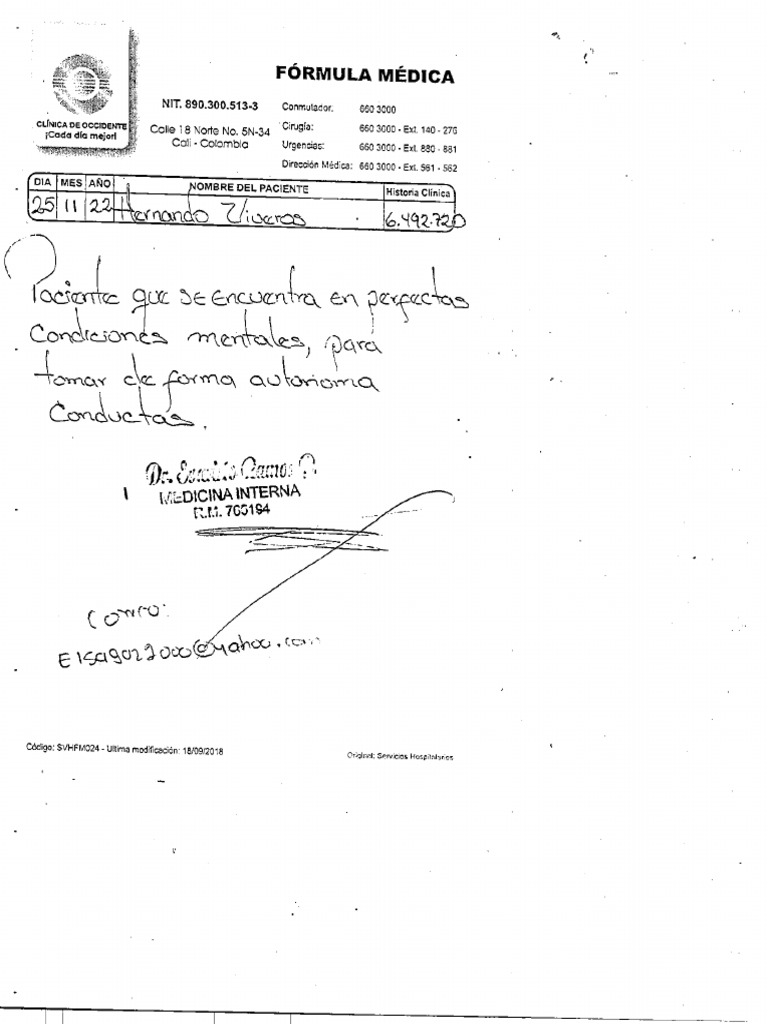 FÓRMULA MÉDICA
CLÍNICA DE OCCIDENTE
¡Cada día mejor!
NIT. 890.300.513-3
Calle 18 Norte No. 5N-34
Cali - Colombia
Conmutador: 660 3000
Cirugía: 660 3000 - Ext. 140 - 276
Urgencias: 660 3000 - Ext. 880 - 881
Dirección Médica: 660 3000 - Ext. 561 - 562
DIA MES AÑO NOMBRE DEL PACIENTE Historia Clínica
25 11 22 Hernando Viveros 6.492.720
Paciente que se encuentra en perfectas
Condiciones mentales, para
tomar de forma autonoma
Conductas.
Dr. Ramos
MEDICINA INTERNA
R.M. 765194
Correo:
@yahoo.com
Código: SVHFM024 - Ultima modificación: 18/09/2018
Original: Servicios Hospitalarios